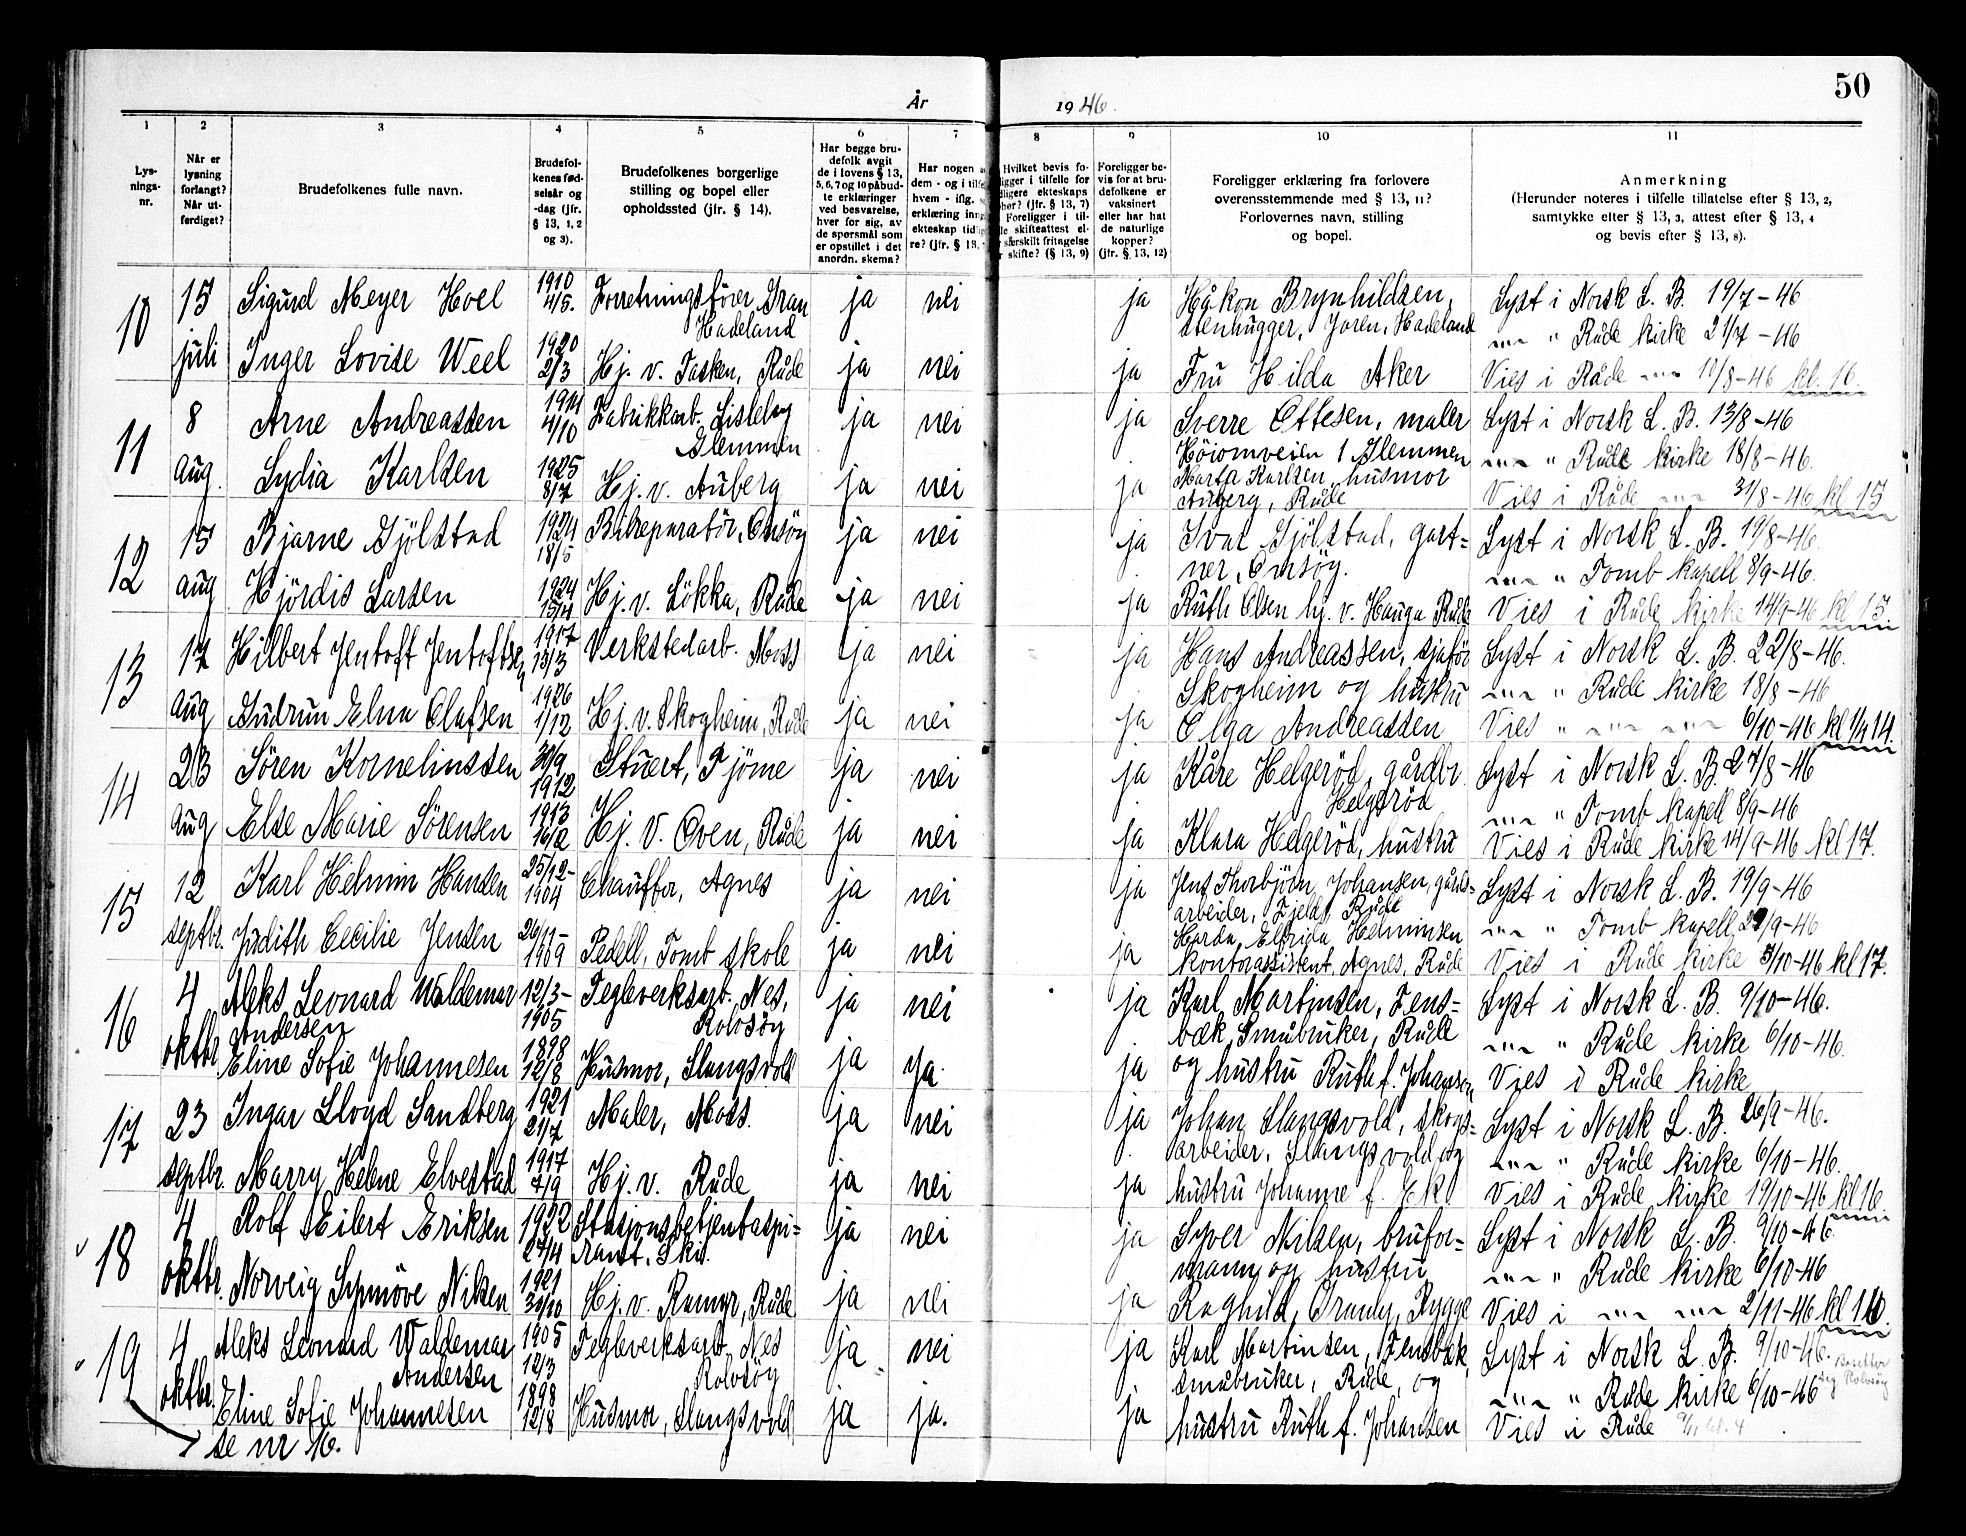 50
År 1946.
1 2 3 4 5 6 7 8 9 10 11
Lys-
nings-
nr.
Når er
lysning
forlangt?
Når ut-
ferdiget?
Brudefolkenes fulle navn.
Brudefol-
kenes fød-
selsår og
-dag (jfr.
§ 13, 1, 2
og 3).
Brudefolkenes borgerlige
stilling og bopel eller
opholdssted (jfr. § 14).
Har begge bru-
defolk avgit
de i lovens § 13,
5, 6, 7 og 10 påbud-
te erklæringer
ved besvarelse,
hver for sig, av
de spørsmål som
er opstillet i det
anordn. skema?
Har nogen a
dem - og i tilfe
hvem - iflg.
erklæring inng
ekteskap tidlig
re? (jfr. § 13,
Hvilket bevis fo-
ligger i tilfelle for
dligere ekteskaps
hør? (jfr. § 13, 7)
Foreligger i til-
le skifteattest el-
særskilt fritagelse
skifte? (§ 13, 9)
Foreligger be-
vis for at bru-
defolkene er
vaksinert
eller har hat
de naturlige
kopper?
(jfr. § 13, 12)
Foreligger erklæring fra forlovere
overensstemmende med § 13, 11?
Forlovernes navn, stilling
og bopel.
Anmerkning
(Herunder noteres i tilfelle tillatelse efter § 13, 2,
samtykke efter § 13, 3, attest efter § 13, 4
og bevis efter § 13, 8).
10 15 Sigurd Meyer Hoel 1910 4/5. Forretningsfører Gran Hadeland ja nei ja Håkon Brynhildsen, Lyst i Norsk L. B. 19/7 - 46
stenhugger, Joren, Hadeland —"— " Råde kirke 21/7 - 46
juli Inger Lovise Weel 1920 2/3 Hj. v. Tasken, Råde ja nei ja Fru Hilda Aker Vies i Råde —"— 10/8-46 kl. 16.
11 8 Arne Andreassen 4/10 Fabrikkarb. Lisleby Glemmen ja nei ja Sverre Ottesen, maler Lyst i Norsk L. B. 13/8-46
Glemmen —"— " Råde kirke 18/8-46.
aug. Lydia Karlsen 1925 8/7 Hj. v. Auberg ja nei ja Marta Karlsen, husmor
Auberg, Råde Vies i Råde —"— 31/8-46 kl 15
12 15 Bjarne Gjölstad 1924 18/5 Bilreparatör, Onsöy ja nei ja Ivar Gjölstad, gart-
ner, Onsöy. Lyst i Norsk L. B. 19/8-46
—"— " Tomb kapell 8/9-46.
aug Hjördis Larsen 1924 15/4 Hj. v. Lökka, Råde ja nei ja Ruth Olsen hj. v. Hauga Råde Vies i Råde kirke 14/9-46 kl 15.
13 17 Hilbert Jentoft Jentoftsen 1917 13/3 Verkstedarb. Moss ja nei ja Hans Andreassen, sjaför Lyst i Norsk L. B. 22/8-46.
Skogheim og hustru —"— " Råde kirke 18/8-46
aug Gudrun Elna Olafsen 1926 1/12 Hj. v. Skogheim, Råde ja nei ja Olga Andreassen Vies " —"— —"— 6/10-46 kl 1/2 14.
14 23 Sören Kornelinssen 30/9 1912 Stuert, Tjöme ja nei ja Kåre Helgeröd, gårdbr. Helgeröd Lyst i Norsk L. B. 27/8-46
—"— " Tomb kapell 8/9-46
aug Else Marie Sörensen 1913 16/2 Hj. v. Oven, Råde ja nei ja Klara Helgeröd, hustru Vies i Råde kirke 14/9-46 kl 17.
15 12 Karl Helmim Hansen 25/12- 1904 Chauffør, Agnes ja nei ja Jens Thorbjörn Johansen, gårds-
arbeider, Fjeld, Råde Lyst i Norsk L. B. 19/9-46
—"— " Tomb kapell 29/9-46
septbr. Judith Cecilie Jensen 26/11- 1909 Pedell, Tomb skole ja nei ja Elfrida Helminsen
kontorassistent, Agnes, Råde Vies i Råde kirke 5/10-46 kl 17.
16 4 Aleks Leonard Waldemar Andersen 12/3- 1905 Teglverksarb. Nes, Rolvsöy ja nei ja Karl Martinsen, Fens-
bæk, Småbruker, Råde Lyst i Norsk L. B. 9/10-46.
—"— " Råde kirke 6/10-46.
oktbr. Eline Sofie Johannesen 1898 12/8 Husmor, Slangsvold ja ja. ja og hustru Ruth f. Johansen Vies i Råde kirke
17 23 Ingar Lloyd Sandberg 1921 21/7 Maler, Moss. ja nei ja Johan Slangsvold, skogs-
arbeider, Slangsvold og Lyst i Norsk L. B. 26/9-46.
—"— " Råde kirke 6/10-46.
septbr. Marry Helene Elvestad 1917 7/9 Hj. v. Råde ja nei ja hustru Johanne f. Ek Vies i Råde kirke 19/10-46 kl 16
18 4 Rolf Eilert Eriksen 1922 27/4 Stasjonsbetjentaspi-
rant. Ski. ja nei ja Syver Nilsen, brufor-
mann og hustru Lyst i Norsk L. B. 9/10-46.
—"— " Råde kirke 6/10-46
oktbr. Norveig Synnöve Nilsen 1921 30/10 Hj. v. Ramyr, Råde ja nei ja Raghild, Rygge Vies i —"— —"— 2/11-46 kl 16.
19 4 Aleks Leonard Waldemar Andersen 1905 12/3 Teglverksarb. Nes Rolvsöy ja nei ja Karl Martinsen, Fensbæk,
småbruker, Råde, og Lyst i Norsk L. B. 9/10-46. Bosetter
sig Rolvsöy
—"— " Råde kirke 6/10-46
oktbr. Eline Sofie Johannesen 1898 12/8 Husmor, Slangsvold ja ja. ja hustru Ruth f. Johansen Vies i Råde
se nr 16.